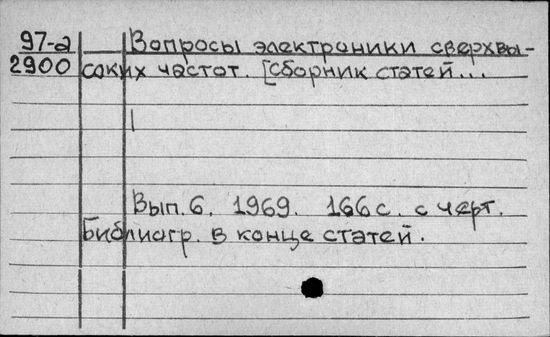 97-а Вопросы электроники сверхвы-
2900 соких частот. [сборник статей...
Вып. 6. 1969. 166 с. с черт.
Библиогр. в конце статей.